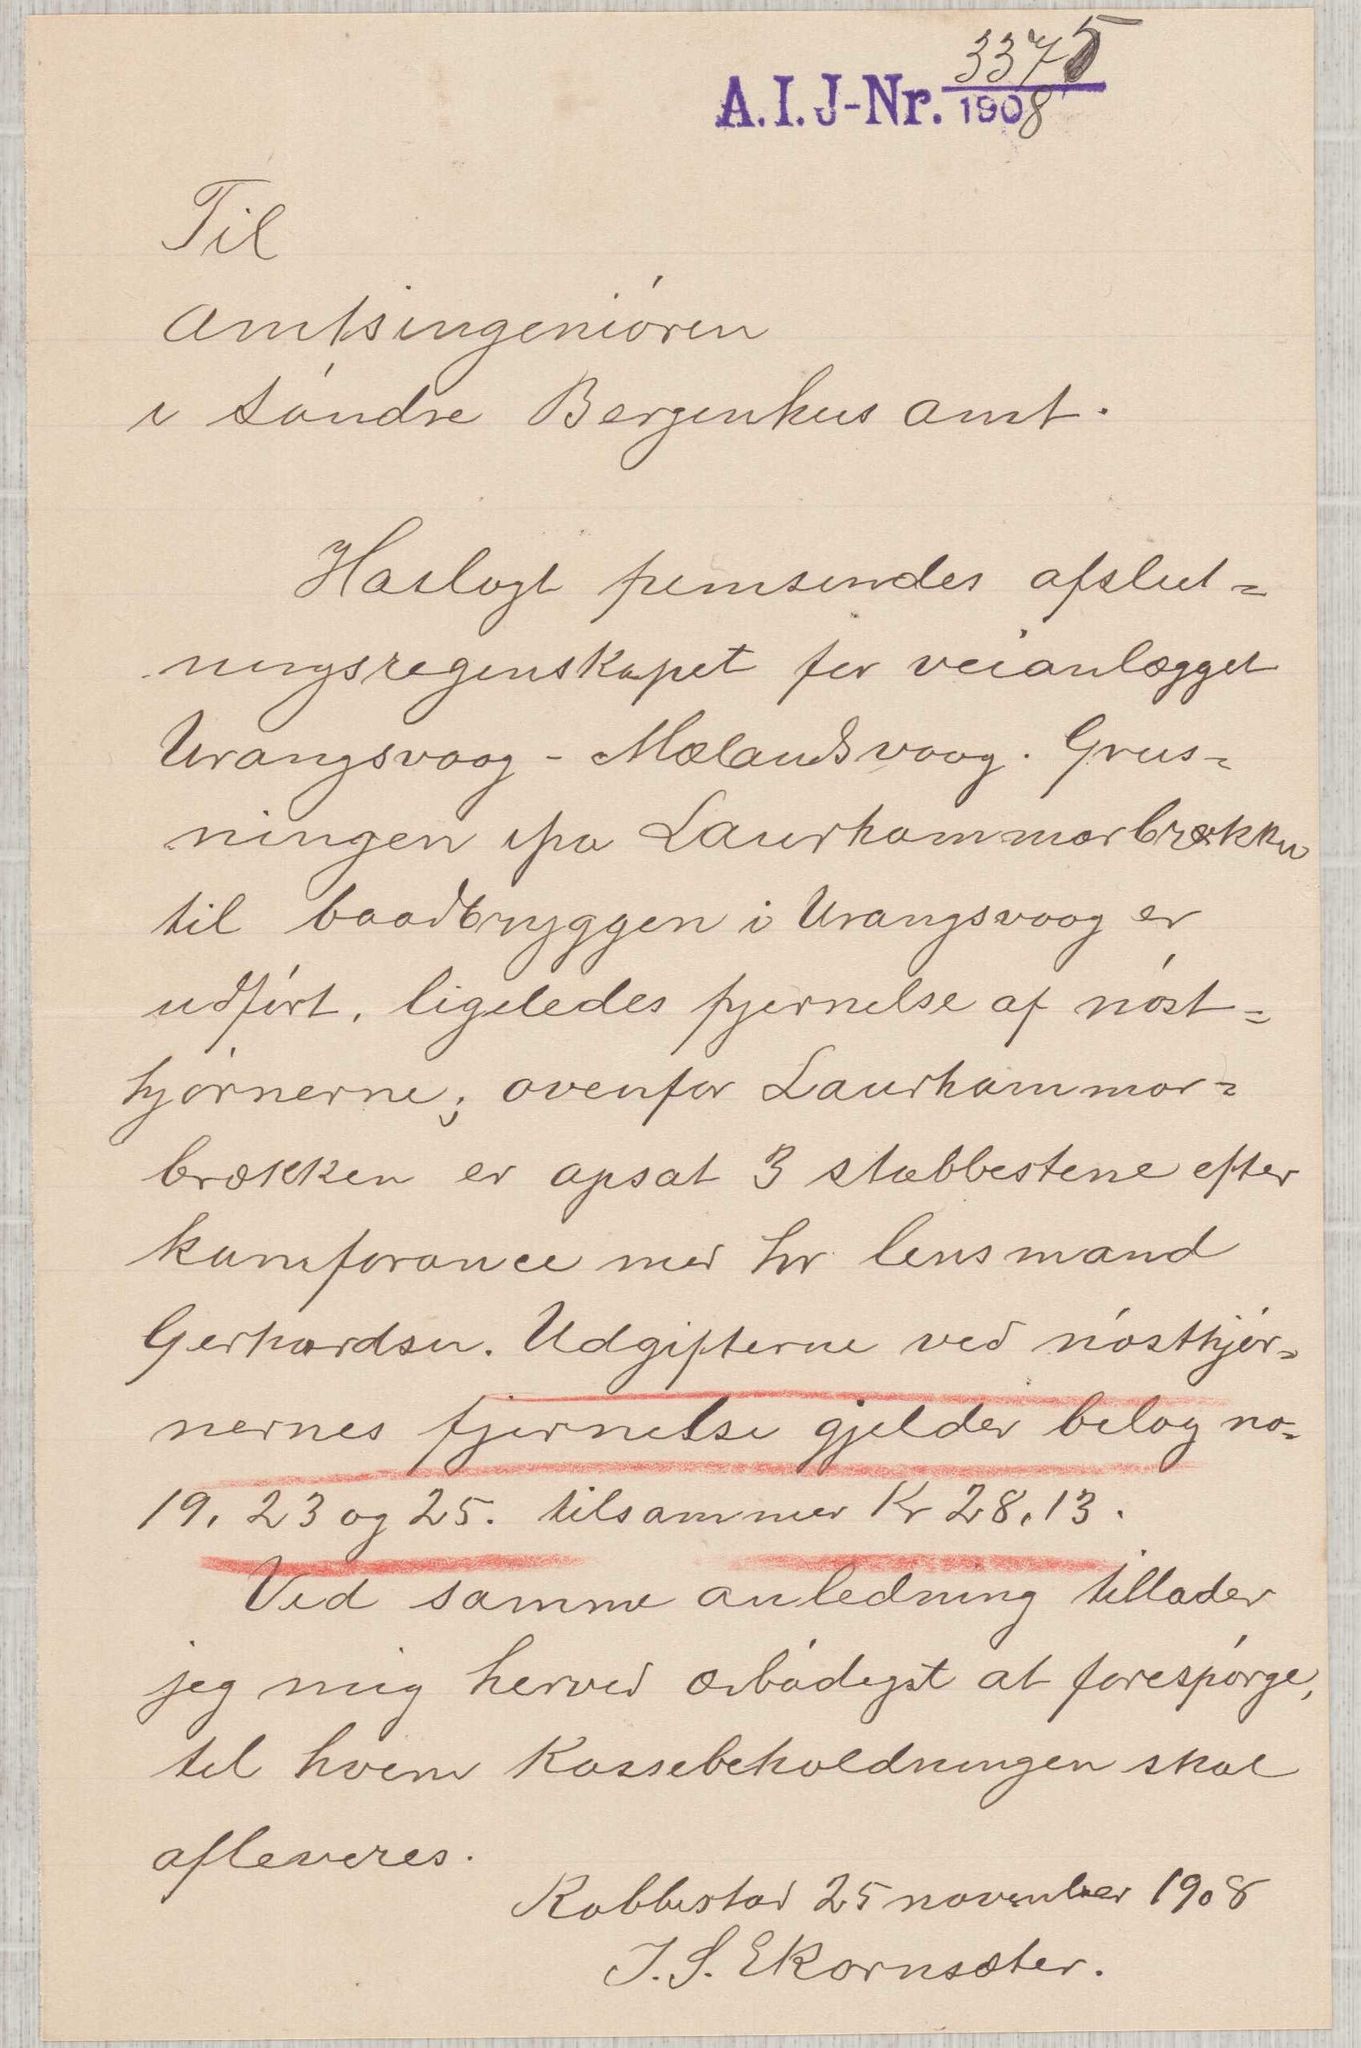 A.I.J-Nr. 3375
1908
Til
Amtsingenióren
i Söndre Bergenhus amt.
Haslagt fremsendes afslut=
ningsregenskapet for veianlægget
Urangsvaag - Mælandsvaag. Grus=
ningen ifra Laurhammarbrækku
til baadbryggen i Urangsvaag er
udfórt, ligeledes fjernelse af nóst=
hjórnerne; ovenfor Laurhammar=
brækken er opsat 3 stabbestene efter
kamforance med hr lensmand
Gerhardsen. Udgifterne ved nósthjór=
nernes fjernelse gjelder belag no.
19, 23 og 25. tilsammen Kr 28,13.
Ved samme anledning tillader
jeg mig herved ærbódigst at forespórge,
til hvem Kassebeholdningen skal
afleveres.
Rabbestad 25 november 1908
J. S. Ekornsæter.